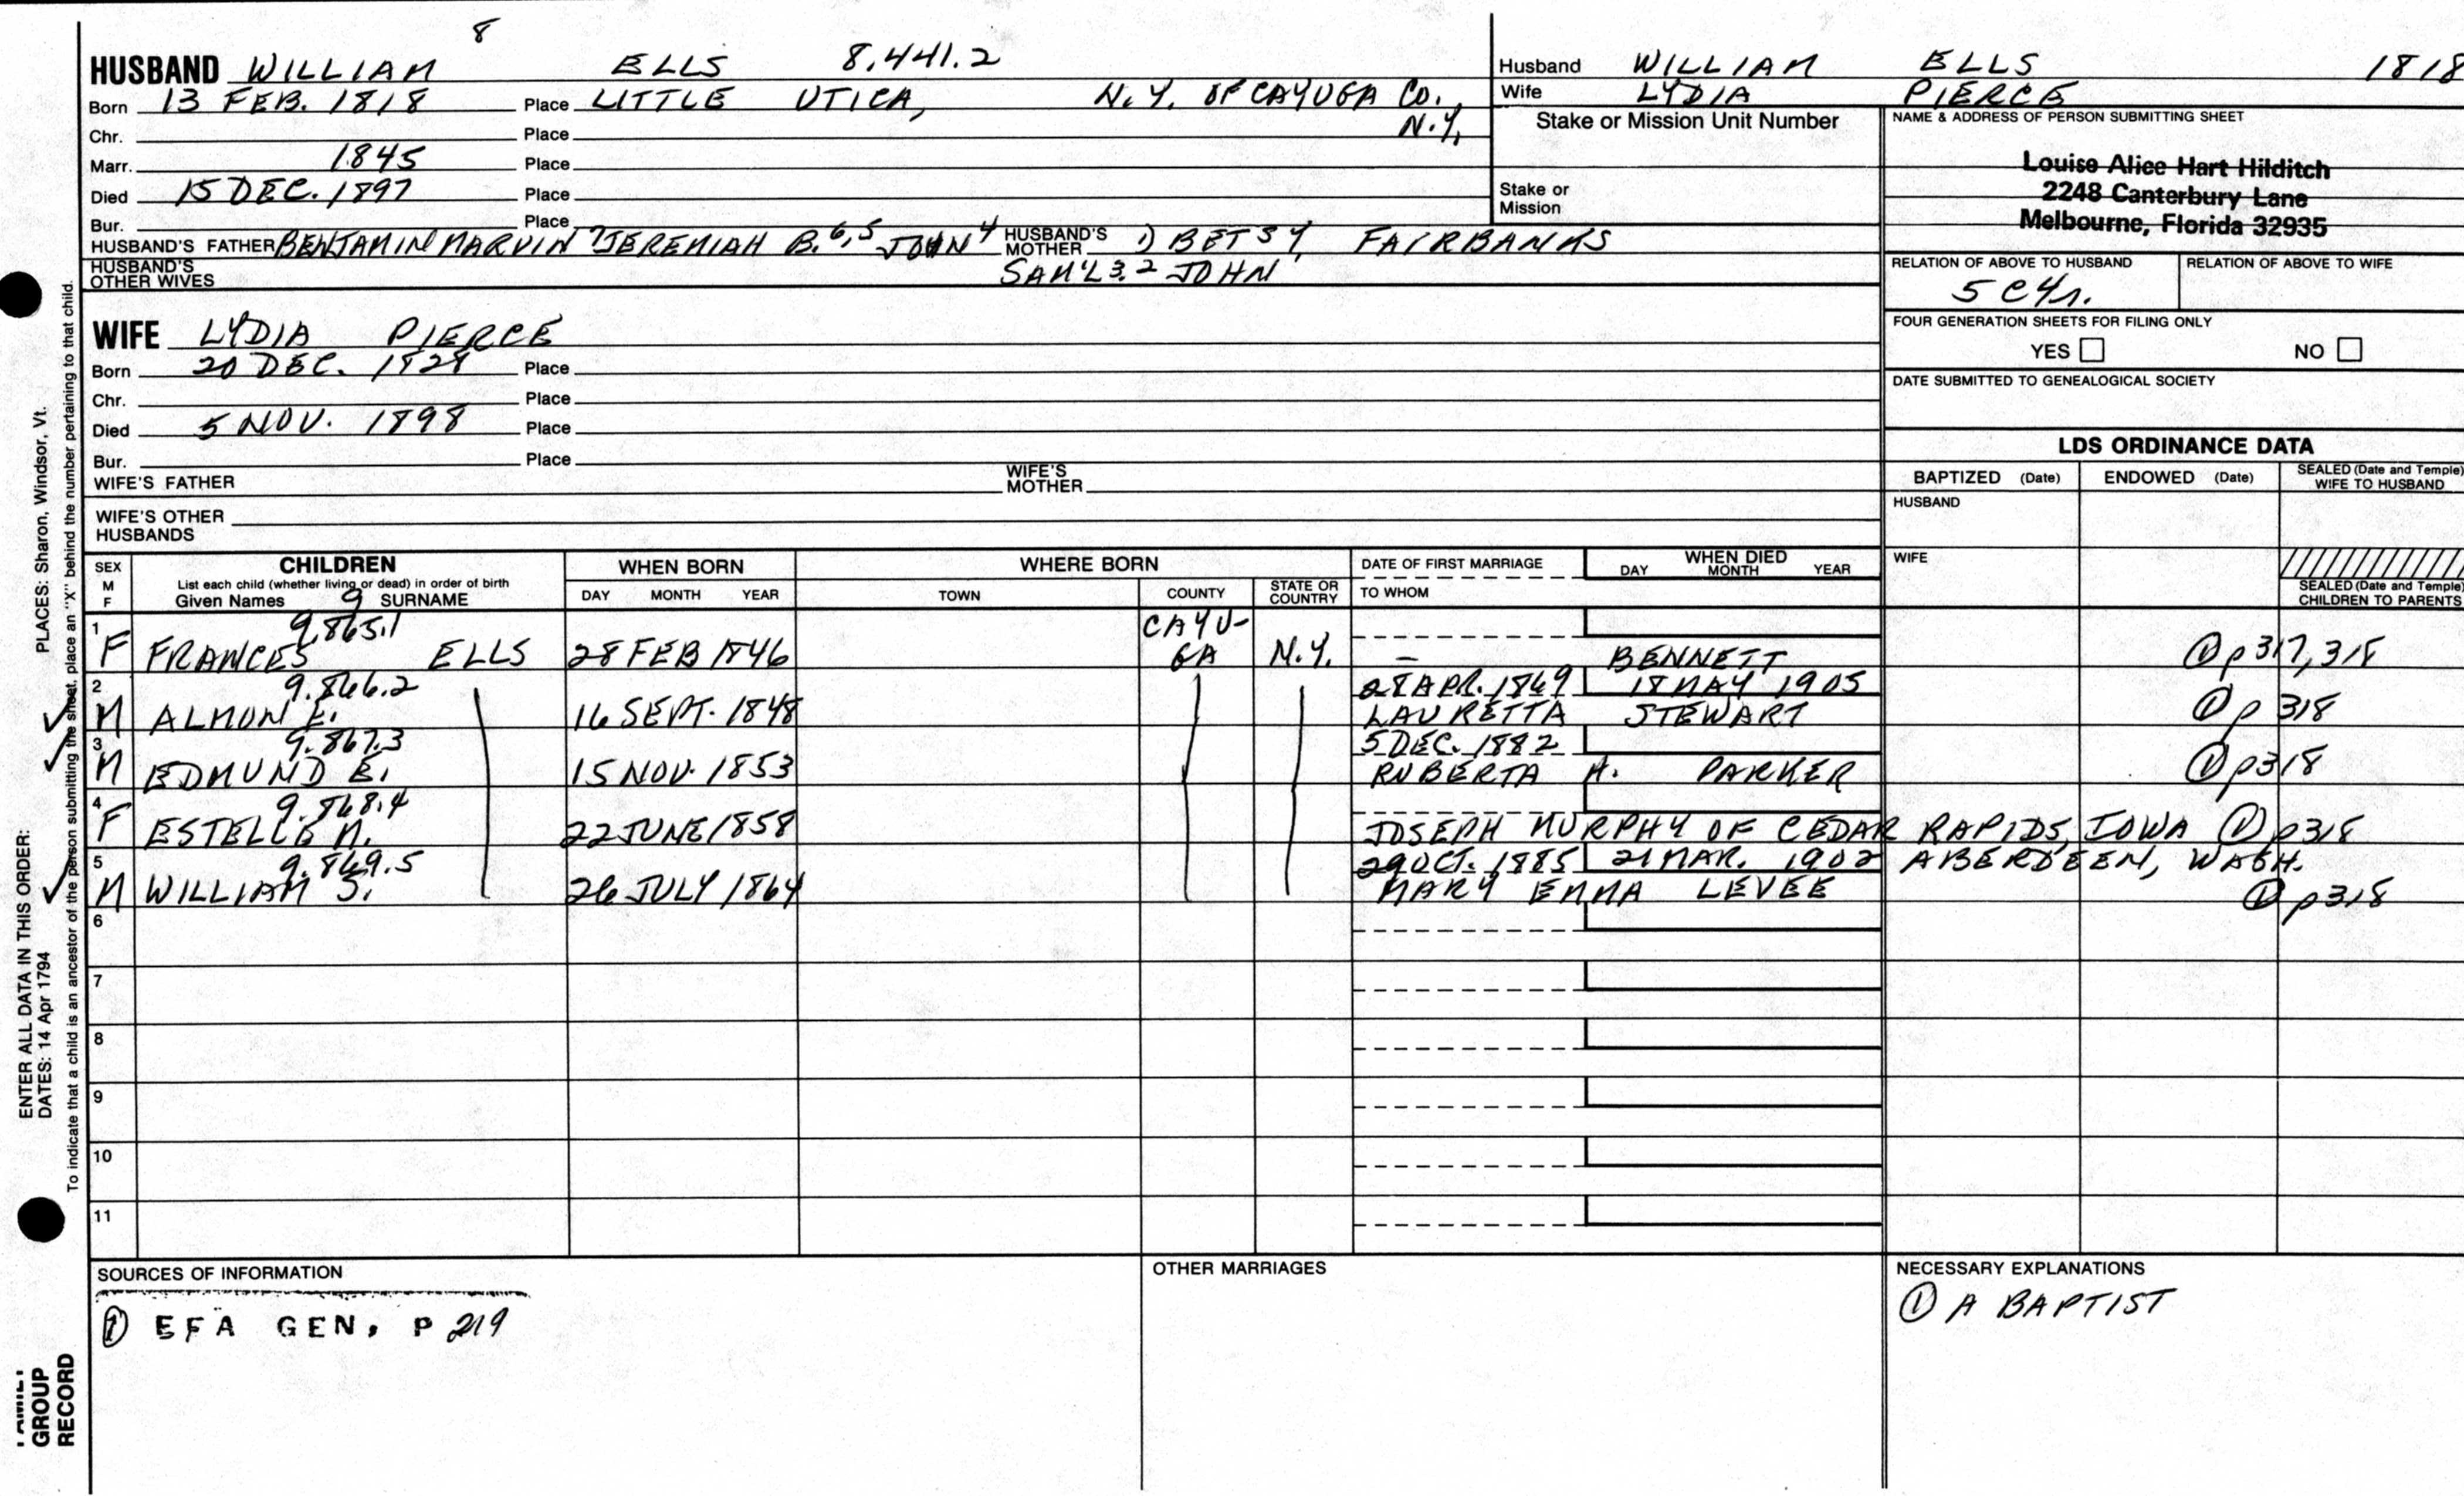 8
HUSBAND WILLIAM ELLS 8.441.2
Born 13 FEB. 1818 Place LITTLE UTICA, N.Y. OF CAYUGA CO., N.Y.
Chr. Place
Marr. 1845 Place
Died 15 DEC. 1897 Place
Bur. Place
HUSBAND'S FATHER BENJAMIN MARVIN 7 JEREMIAH B. 6,5 JOHN 4 HUSBAND'S MOTHER 1) BETSY FAIRBANKS
HUSBAND'S OTHER WIVES SAM'L 3.2 JOHN
Husband WILLIAM ELLS 1818
Wife LYDIA PIERCE
Stake or Mission Unit Number
Stake or Mission
NAME & ADDRESS OF PERSON SUBMITTING SHEET
Louise Alice Hart Hilditch
2248 Canterbury Lane
Melbourne, Florida 32935
RELATION OF ABOVE TO HUSBAND RELATION OF ABOVE TO WIFE
FOUR GENERATION SHEETS FOR FILING ONLY
YES NO
DATE SUBMITTED TO GENEALOGICAL SOCIETY
WIFE LYDIA PIERCE
Born 20 DEC. 1828 Place
Chr. Place
Died 5 NOV. 1898 Place
Bur. Place
WIFE'S FATHER WIFE'S MOTHER
WIFE'S OTHER HUSBANDS
LDS ORDINANCE DATA
BAPTIZED (Date) ENDOWED (Date) SEALED (Date and Temple) WIFE TO HUSBAND
HUSBAND
WIFE
SEALED (Date and Temple) CHILDREN TO PARENTS
SEX M F
CHILDREN
List each child (whether living or dead) in order of birth
Given Names 9 SURNAME
WHEN BORN
DAY MONTH YEAR
WHERE BORN
TOWN COUNTY STATE OR COUNTRY
DATE OF FIRST MARRIAGE
TO WHOM
WHEN DIED
DAY MONTH YEAR
1 9.865.1 CAYU-
F FRANCES ELLS 28 FEB 1846 GA N.Y. — BENNETT ① p317,318
2 9.866.2 28 APR. 1869 18 MAY 1905
M ALMON E. 16 SEPT. 1848 LAURETTA STEWART ① p 318
3 9.867.3 5 DEC. 1882
M EDMUND E. 15 NOV. 1853 RUBERTA A. PARKER ① p318
4 9.868.4
F ESTELLE M. 22 JUNE 1858 JOSEPH MURPHY OF CEDAR RAPIDS, IOWA ① p318
5 9.869.5 29 OCT. 1885 21 MAR. 1902 ABERDEEN, WASH.
M WILLIAM J. 26 JULY 1864 MARY EMMA LEVEE ① p318
6
7
8
9
10
11
SOURCES OF INFORMATION
① EFA GEN, P 219
OTHER MARRIAGES
NECESSARY EXPLANATIONS
① A BAPTIST
ENTER ALL DATA IN THIS ORDER:
DATES: 14 Apr 1794 PLACES: Sharon, Windsor, Vt.
To indicate that a child is an ancestor of the person submitting the sheet, place an "X" behind the number pertaining to that child.
GROUP
RECORD